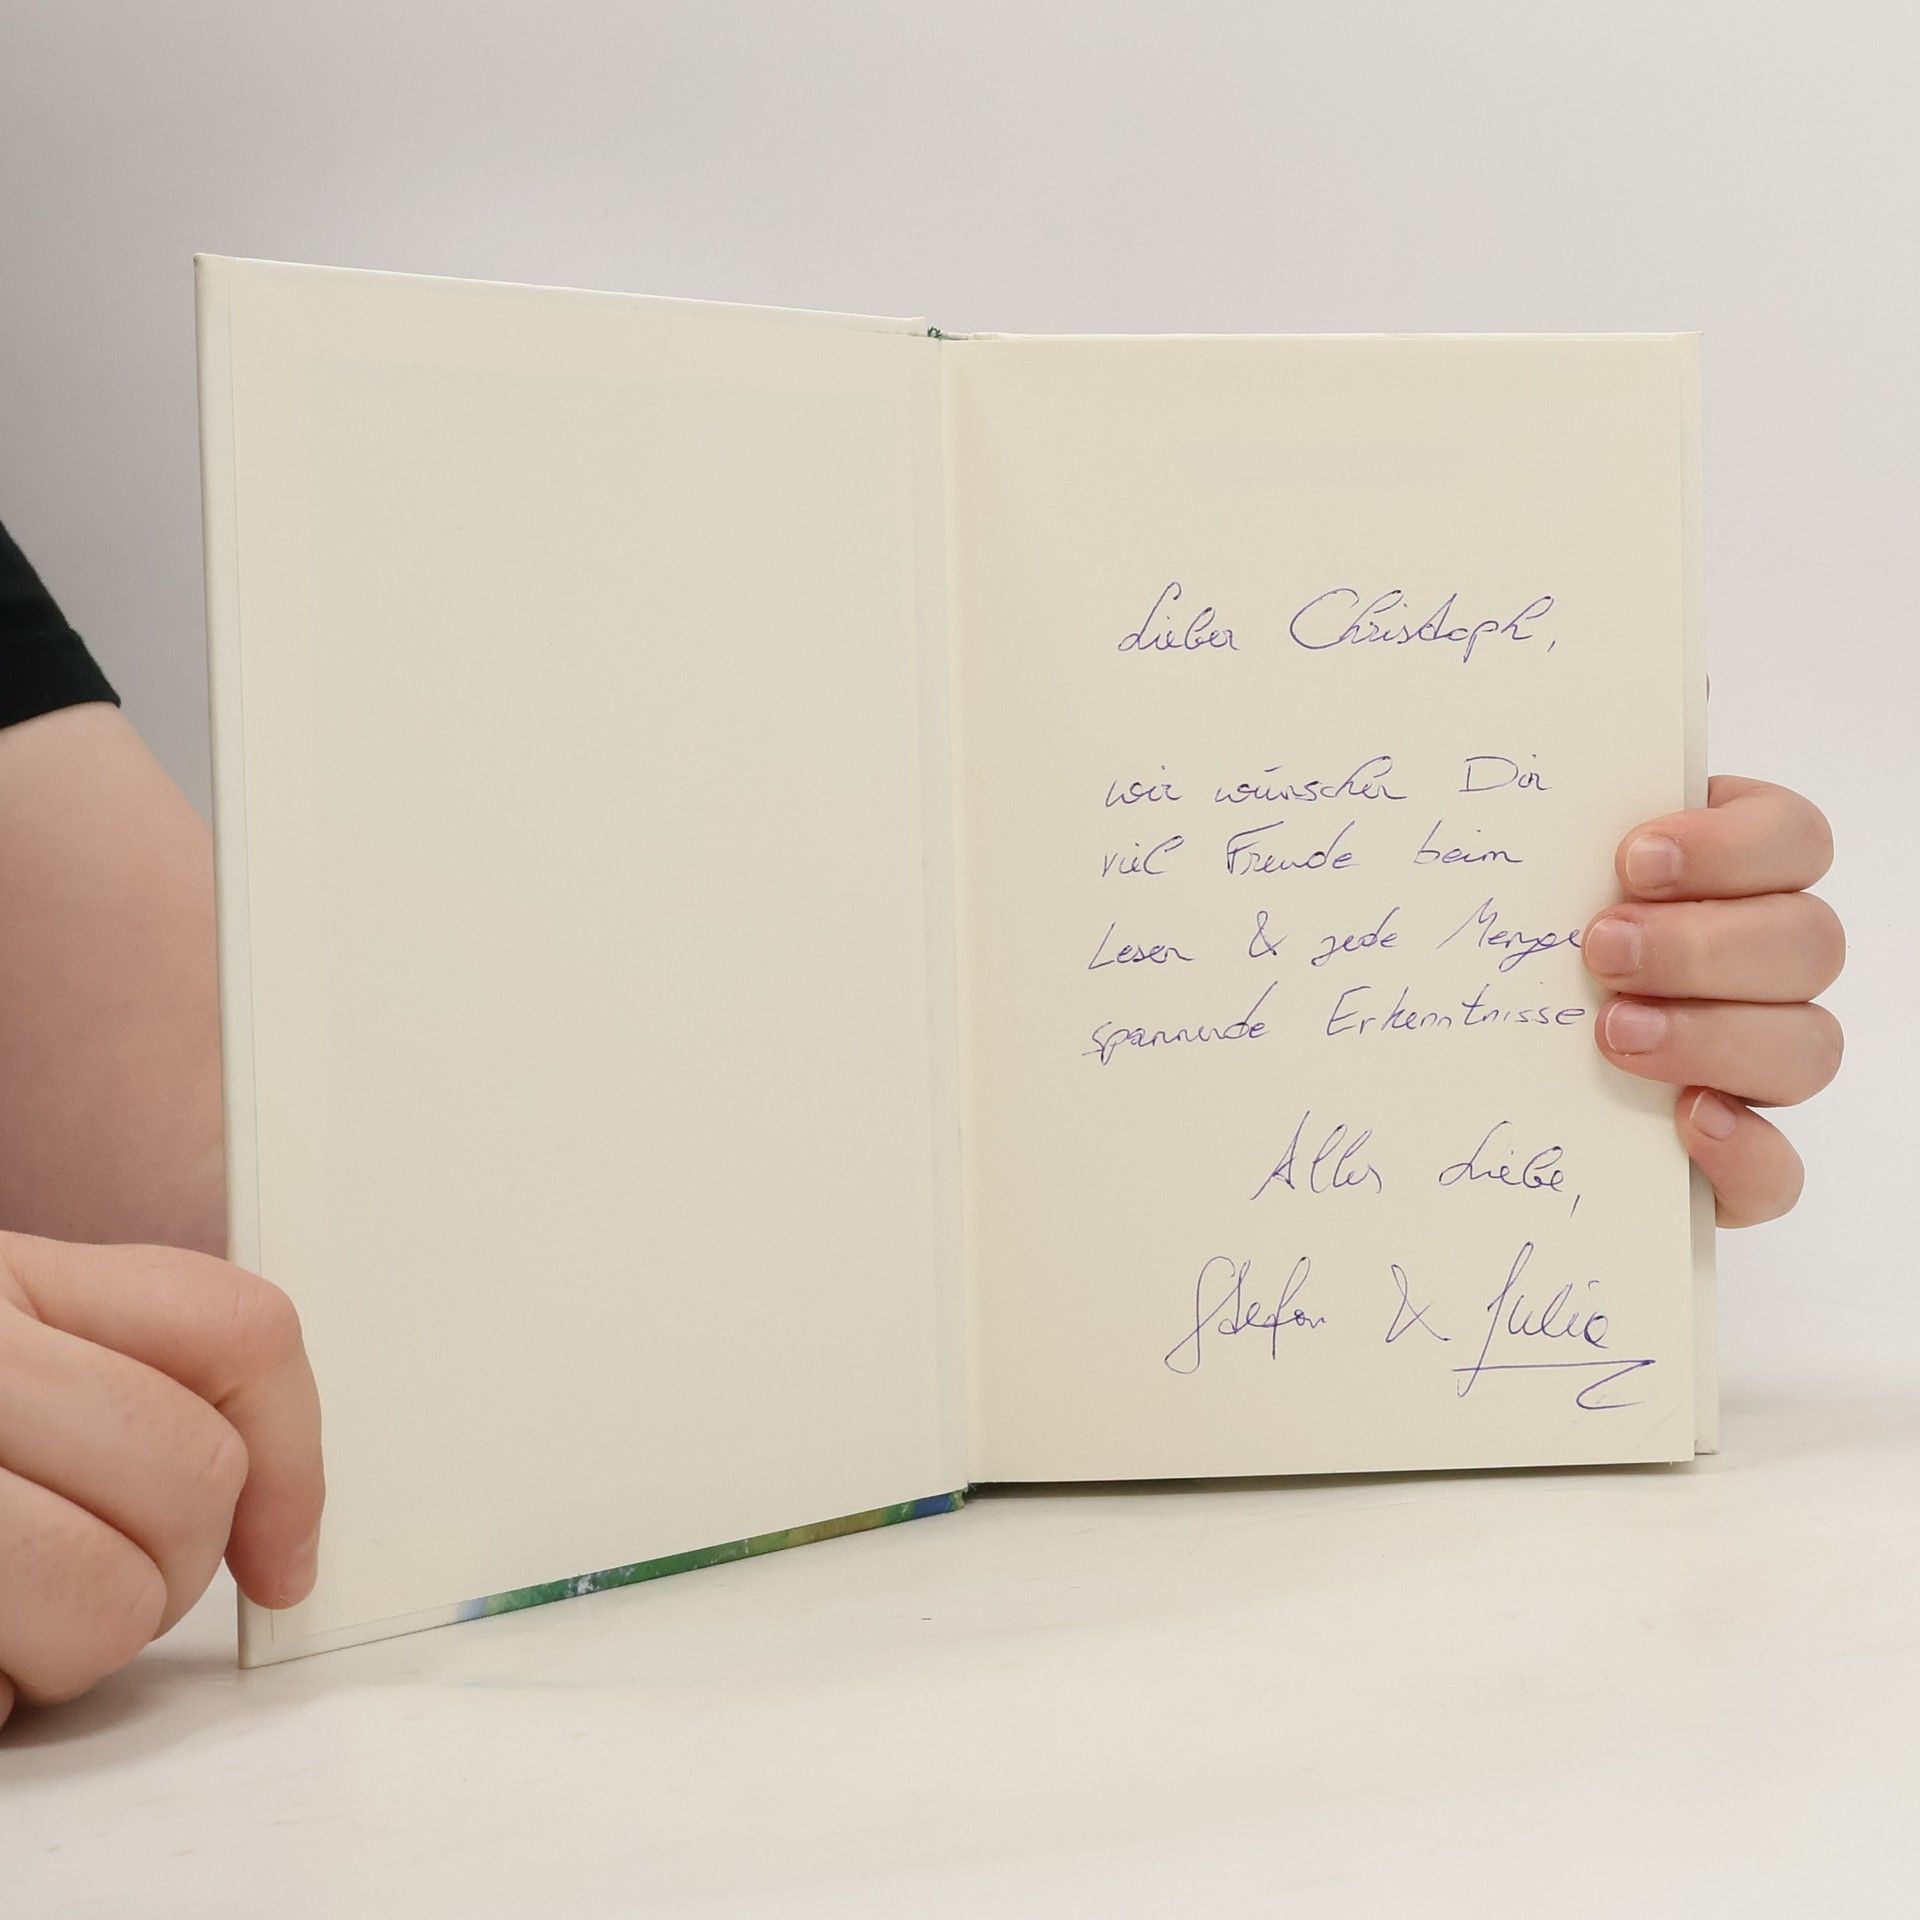 Lieber Christoph,
wir wünschen Dir
viel Freude beim
Lesen & jede Menge
spannende Erkenntnisse
Alles Liebe,
Stefan & Julia